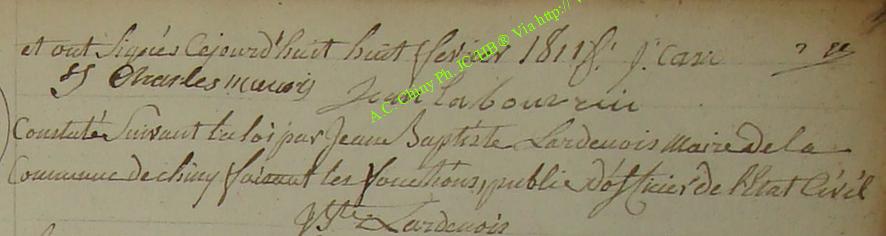 et ont signées Cejourd'huit huit fevrier 1811 J. Carr
Charles marois
Jean Labourrin
Constaté Suivant la loi par Jean Baptiste Lardenois Maire de la
Commune de chiny faisant les fonctions, public d'officier de l'Etat Civil
Lardenois
A.C. Chiny Ph. JC HB® Via http://